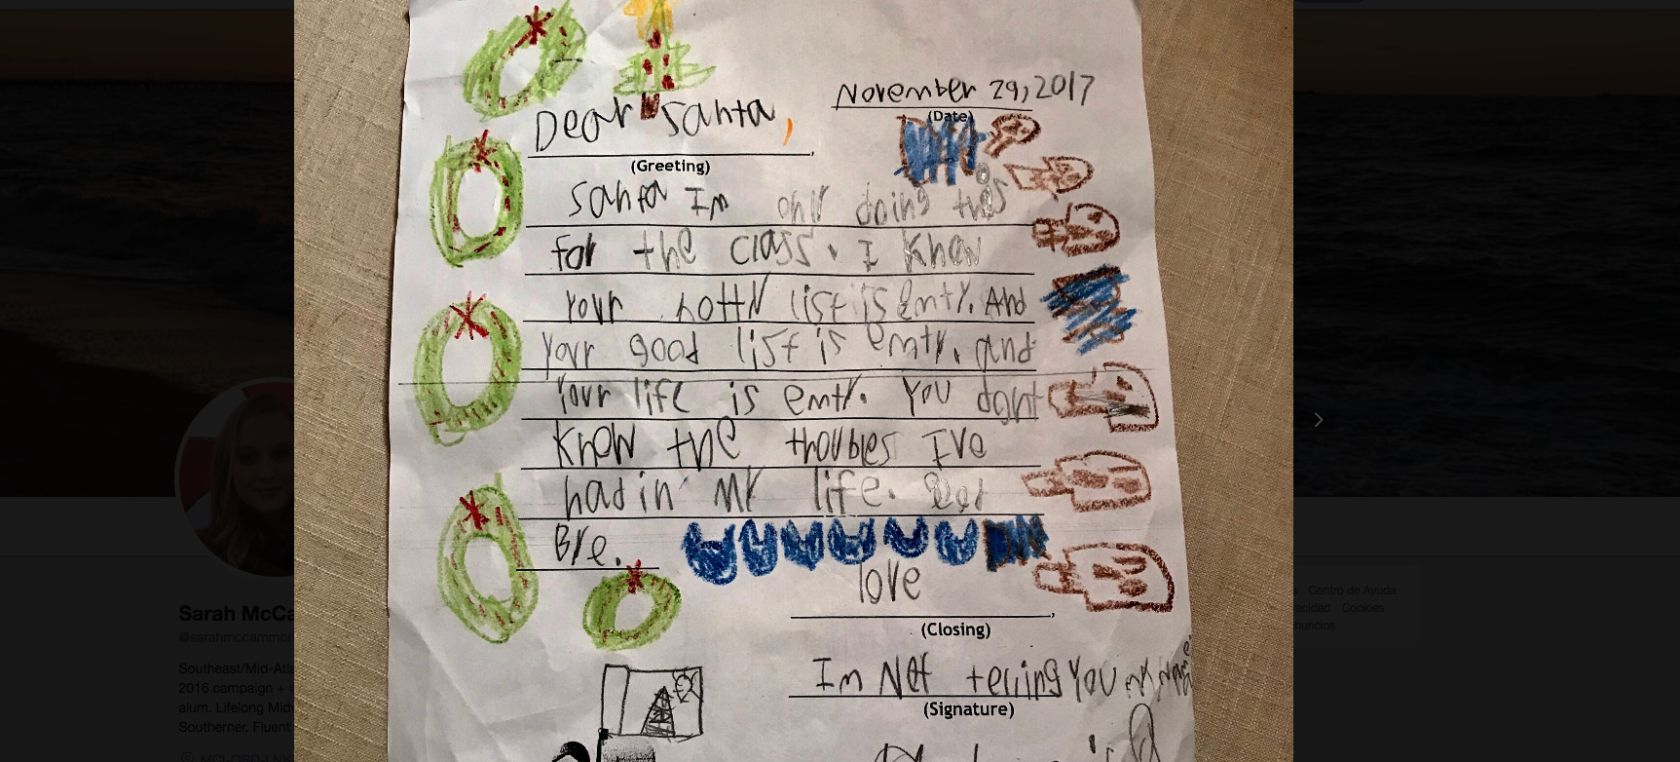 November 29, 2017
(Date)
Dear Santa,
(Greeting)
Santa Im only doing this
for the class. I know
your notty list is emty. And
your good list is emty. and
Your life is emty. You dont
know the troubles Ive
had in my life. Good
Bye.
love
(Closing)
Im Not telling you my name
(Signature)
Sarah McCa
@sarahmccammon
Southeast/Mid-Atla
2016 campaign +
alum. Lifelong Midw
Southerner. Fluent
Centro de Ayuda
acidad Cookies
nuncios